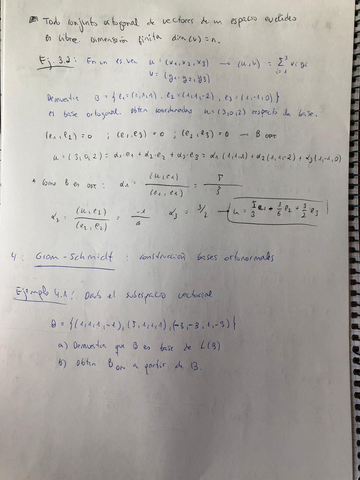 Todo conjunto ortogonal de vectores de un espacio euclídeo
es libre. dimensión finita dim(V) = n.
Ej. 3.2: En un es. vec. u = (x1, x2, x3) → (u, v) = Σ xi yi
v = (y1, y2, y3)
Demuestra B = {e1=(1,1,1), e2=(1,1,-2), e3=(1,-1,0)}
es base ortogonal. Obten coordenadas u=(3,0,2) respecto de base.
(e1, e2)=0 ; (e1, e3)=0 ; (e2, e3)=0 → B
u = (3,0,2) = α1 e1 + α2 e2 + α3 e3 = α1 (1,1,1) + α2 (1,1,-2) + α3 (1,-1,0)
* Como B es ort. α1 = (u, e1) / (e1, e1) = 5/3
α2 = (u, e2) / (e2, e2) = -1/6 α3 = 3/2 → u = 5/3 e1 + 1/6 e2 + 3/2 e3
4: Gram-Schmidt : construcción bases ortonormales
Ejemplo 4.1: Dado el subespacio vectorial
B = {(1,1,1,-1), (3,1,1,1), (-3,-3,1,-3)}
a) Demuestra que B es base de L(B)
b) Obten a partir de B.